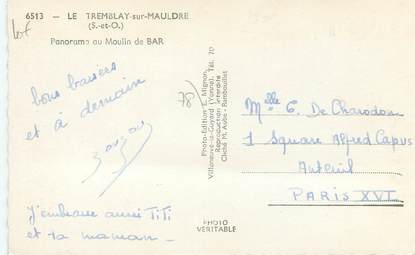 6513 - LE TREMBLAY-sur-MAULDRE
(S.-et-O.)
Panorama au Moulin de BAR
bons baisers
et à demain
J'embrasse aussi TiTi
et ta maman -
78)
Photo-Edition L. Mignon
Villeneuve-la-Guyard (Yonne), Tél. 70
Reproduction interdite
Cliché M. Aubé - Rambouillet
PHOTO
VÉRITABLE
Melle C. De Charodon
1 Square Alfred Capus
Auteuil
PARIS XVI